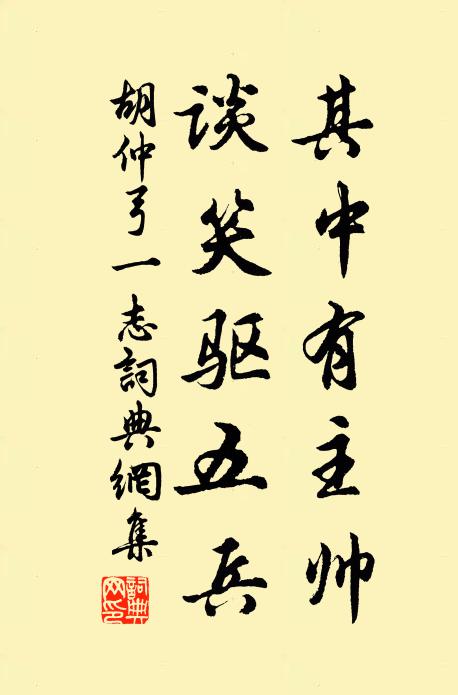 其中有主帅
谈笑驱五兵
胡仲弓一志詞典網集
詞典
网印